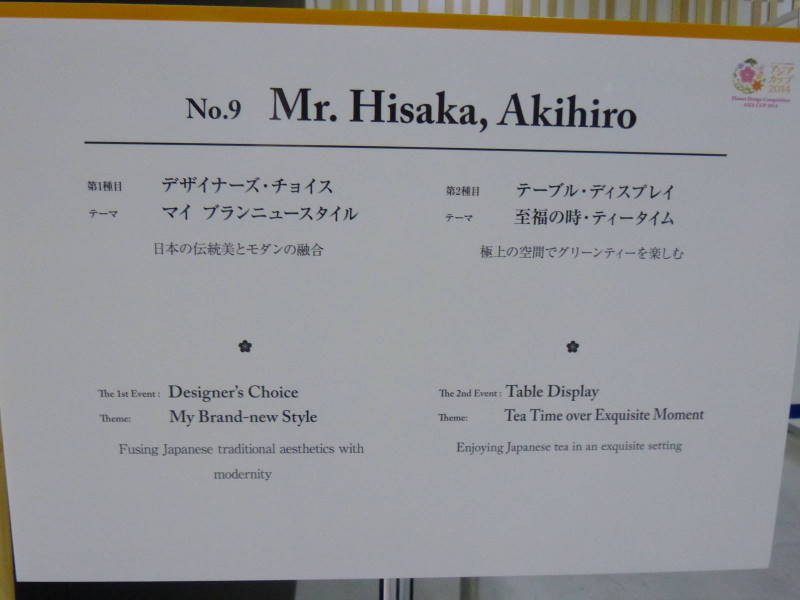 アジア
カップ
2014
Flower Design Competition
ASIA CUP 2014
No.9 Mr. Hisaka, Akihiro
第1種目 デザイナーズ・チョイス
テーマ マイ ブランニュースタイル
日本の伝統美とモダンの融合
第2種目 テーブル・ディスプレイ
テーマ 至福の時・ティータイム
極上の空間でグリーンティーを楽しむ
The 1st Event : Designer's Choice
Theme: My Brand-new Style
Fusing Japanese traditional aesthetics with
modernity
The 2nd Event : Table Display
Theme: Tea Time over Exquisite Moment
Enjoying Japanese tea in an exquisite setting